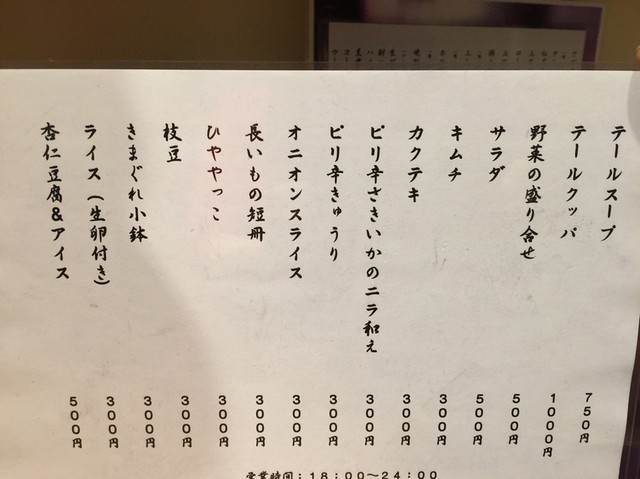 テールスープ 750円
テールクッパ 1000円
野菜の盛り合せ 500円
サラダ 500円
キムチ 300円
カクテキ 300円
ピリ辛さきいかのニラ和え 300円
ピリ辛きゅうり 300円
オニオンスライス 300円
長いもの短冊 300円
ひややっこ 300円
枝豆 300円
きまぐれ小鉢 300円
ライス(生卵付き) 300円
杏仁豆腐&アイス 500円
営業時間:18:00〜24:00